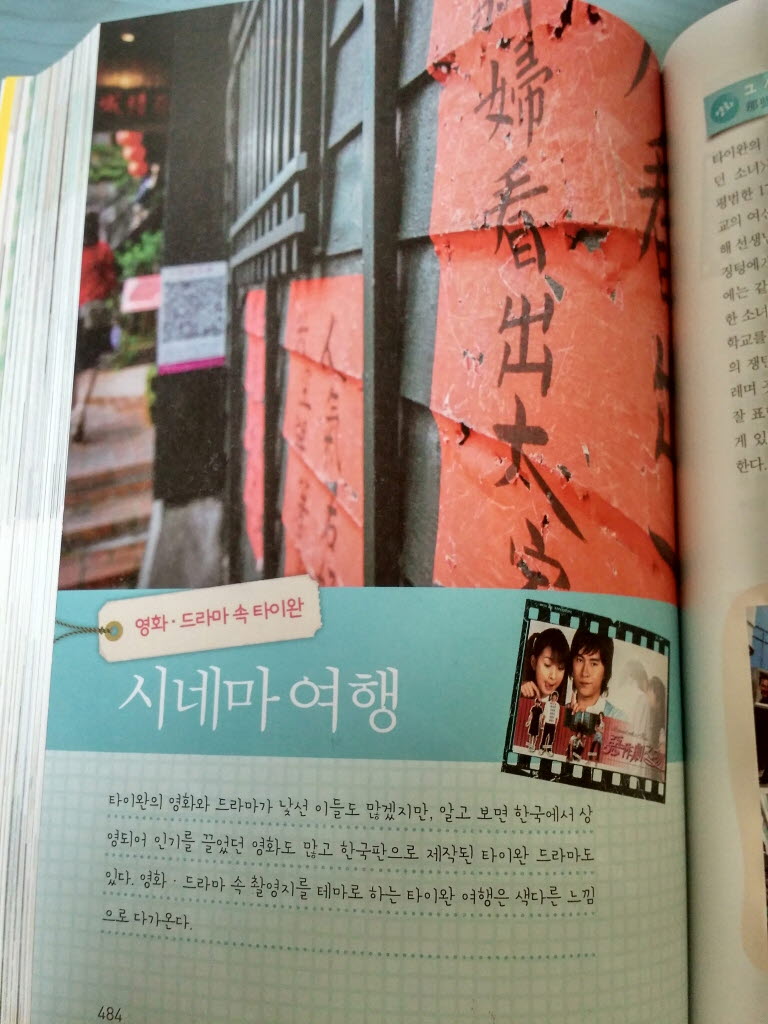 婦看出大
영화 · 드라마 속 타이완
시네마 여행
惡作劇之吻
타이완의 영화와 드라마가 낯선 이들도 많겠지만, 알고 보면 한국에서 상
영되어 인기를 끌었던 영화도 많고 한국판으로 제작된 타이완 드라마도
있다. 영화 · 드라마 속 촬영지를 테마로 하는 타이완 여행은 색다른 느낌
으로 다가온다.
484
영화
타이완의
던 소녀>
평범한 17
교의 여신
해 선생님
징텅에게
에는 같
한 소녀
학교를
의 쟁탄
래며 
잘 표
게 있
한다.